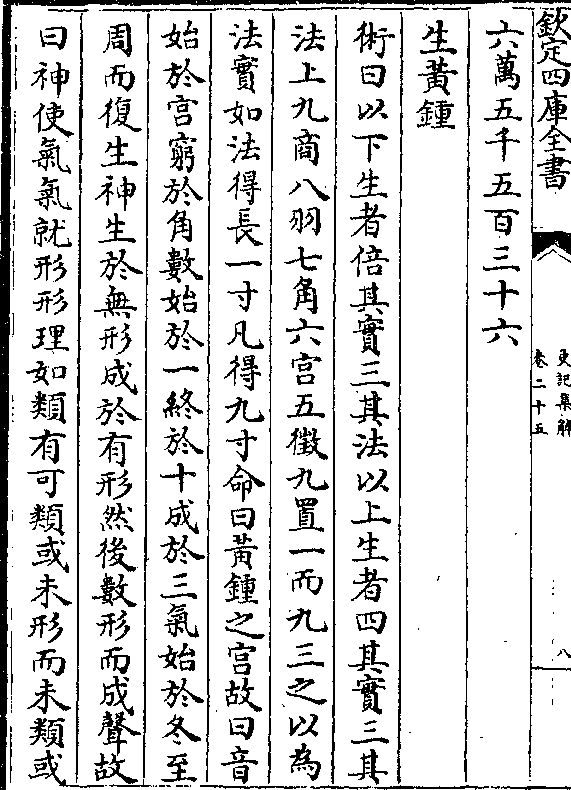 欽定四庫全書
史記集解
卷二十五
八
六萬五千五百三十六
生黃鍾
術曰以下生者倍其實三其法以上生者四其實三其
法上九商八羽七角六宮五徵九置一而九三之以為
法實如法得長一寸凡得九寸命曰黃鍾之宮故曰音
始於宮窮於角數始於一終於十成於三氣始於冬至
周而復生神生於無形成於有形然後數形而成聲故
曰神使氣氣就形形理如類有可類或未形而未類或